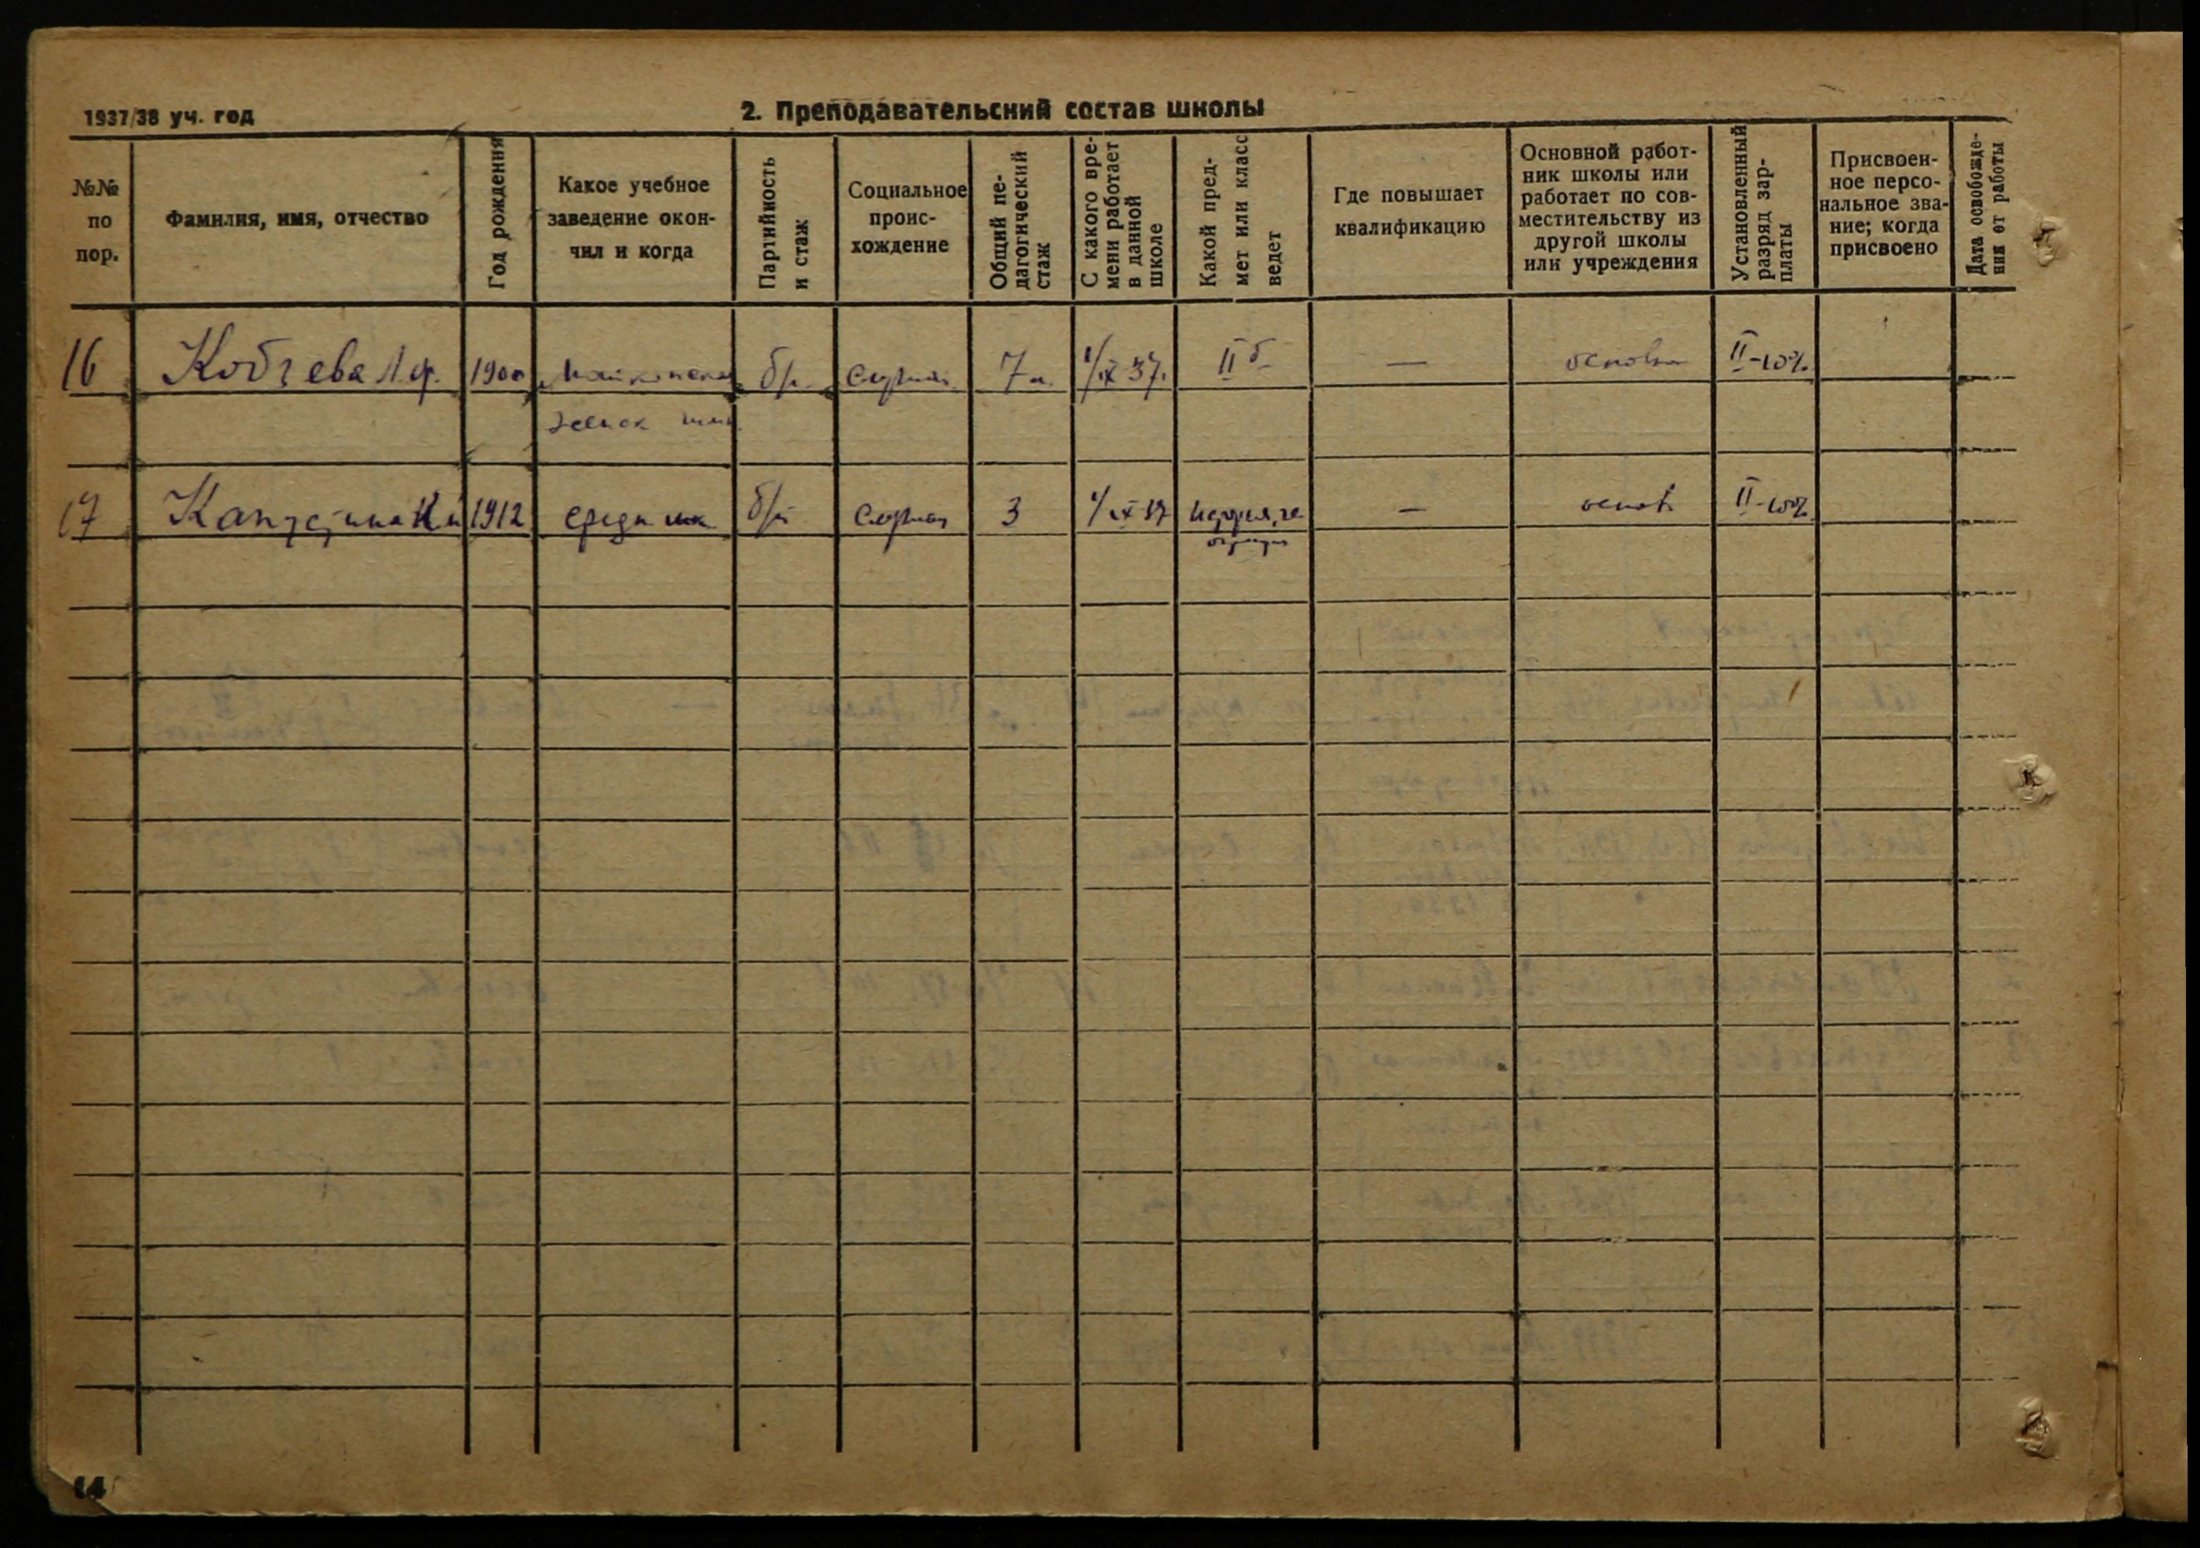 1937/38 уч. год
2. Преподавательский состав школы
№№ по пор.
Фамилия, имя, отчество
Год рождения
Какое учебное заведение окончил и когда
Партийность и стаж
Социальное происхождение
Общий педагогический стаж
С какого времени работает в данной школе
Какой предмет или класс ведет
Где повышает квалификацию
Основной работник школы или работает по совместительству из другой школы или учреждения
Установленный разряд зарплаты
Присвоенное персональное звание; когда присвоено
Дата освобождения от работы
16 1900 б/п 7 1/IX 37. II б — II-10%.
17 Капустина 1912 средн шк б/п 3 1/IX 37 — основ II-10%
14